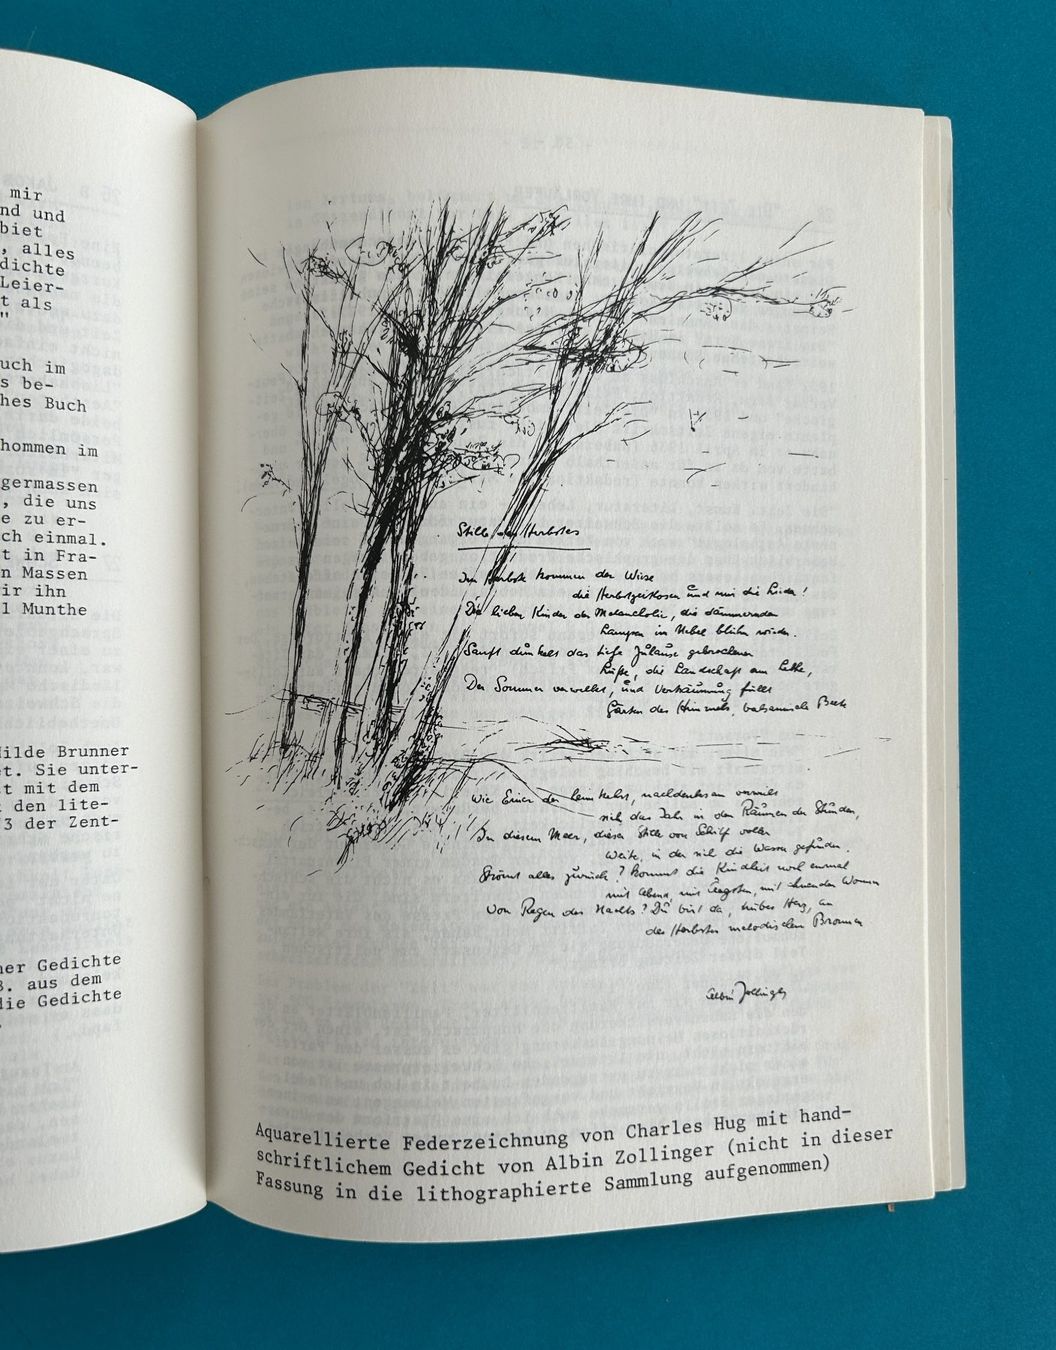 mir
nd und
biet
, alles
dichte
Leier-
t als
"
uch im
s be-
hes Buch
hommen im
germassen
, die uns
e zu er-
ch einmal.
t in Fra-
n Massen
ir ihn
l Munthe
ilde Brunner
et. Sie unter-
t mit dem
den lite-
3 der Zent-
her Gedichte
B. aus dem
die Gedichte
Stille des Herbstes
Im Herbste kommen der Wiese
die Herbstzeitlosen und mir die Lieder!
Die lieben Kinder der Melancholie, die dämmernden
Lampen im Nebel blühn wieder.
Sanft dunkelt das tiefe Zuhause gebrochener
Lüfte, die Landschaft am Lethe,
Der Sommer verwellet, und Verträumung füllt
Gärten des Himmels, balsamische Beete
Wie Einer der heimkehrt, nachdenksam verweilt
sich das Jahr in den Räumen der Stunden,
In diesem Meer, dieser Stille von Schilf voller
Weite, in der sich die Wasser gefunden.
Strömt alles zurück? Kommt die Kindheit noch einmal
mit Abend, mit Ängsten, mit ahnenden Wonnen
Vom Regen des Nachts? Du bist da, trübes Herz, an
des Herbstes melodischem Bronnen
Albin Zollinger
Aquarellierte Federzeichnung von Charles Hug mit hand-
schriftlichem Gedicht von Albin Zollinger (nicht in dieser
Fassung in die lithographierte Sammlung aufgenommen)